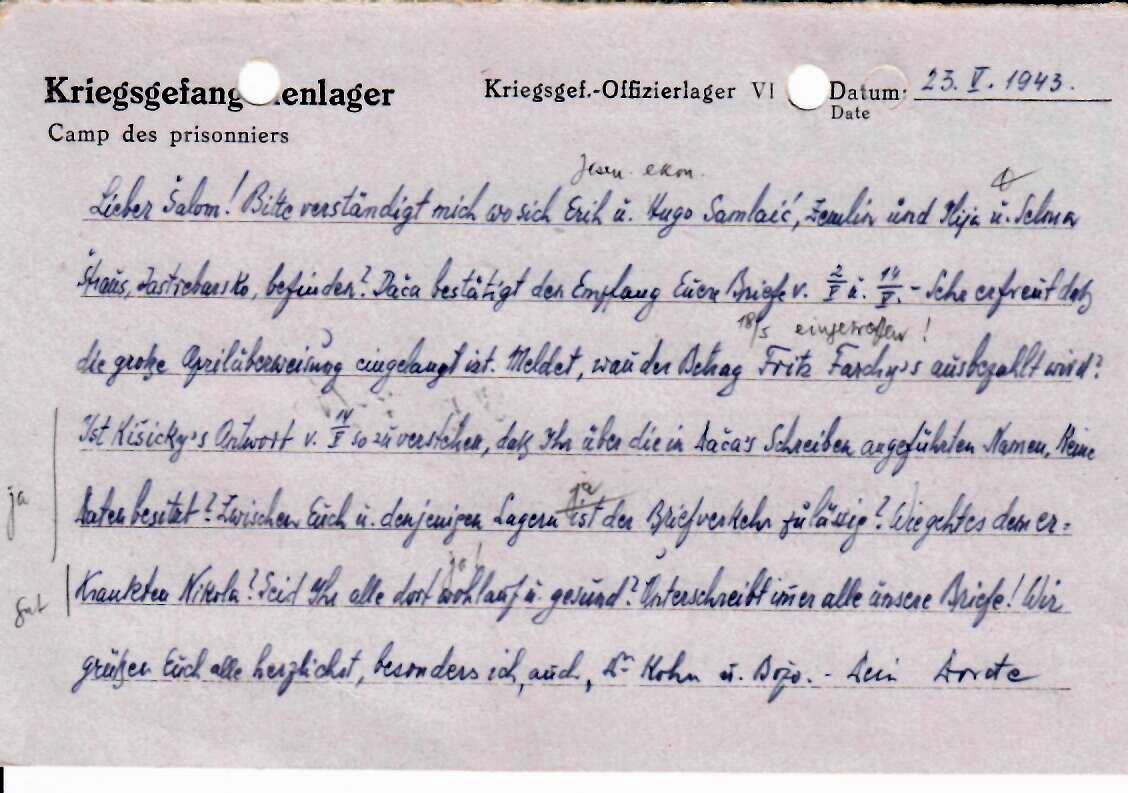 Kriegsgefang enenlager
Kriegsgef.-Offizierlager VI
Datum: 23. V. 1943.
Date
Camp des prisonniers
Jasen. ekon.
Lieber Šalom! Bitte verständigt mich wo sich Erih u. Hugo Samlaić, Zemlin und Ilija u. Selma
Špaus, Jastrebarsko, befinden? Dača bestätigt den Empfang Eurer Briefe v. 2/V u. 14/V. - Sehr erfreut daß
18/5 eingetroffen!
die große Aprilüberweisung eingelangt ist. Meldet, wan der Betrag Fritz Farchy's ausbezahlt wird?
Ist Kišicky's Antwort v. 14/V so zu verstehen, daß Ihr über die in Dača's Schreiben angeführten Namen, keine
ja
ja
Daten besitzt? Zwischen Euch u. denjenigen Lagern ist der Briefverkehr zulässig? Wie geht es dem er=
ja!
gut
krankten Nikola? Seid Ihr alle dort wohlauf u. gesund? Unterschreibt imer alle unsere Briefe! Wir
grüßen Euch alle herzlichst, besonders ich, auch, Dr Kohn u. Božo. - Dein